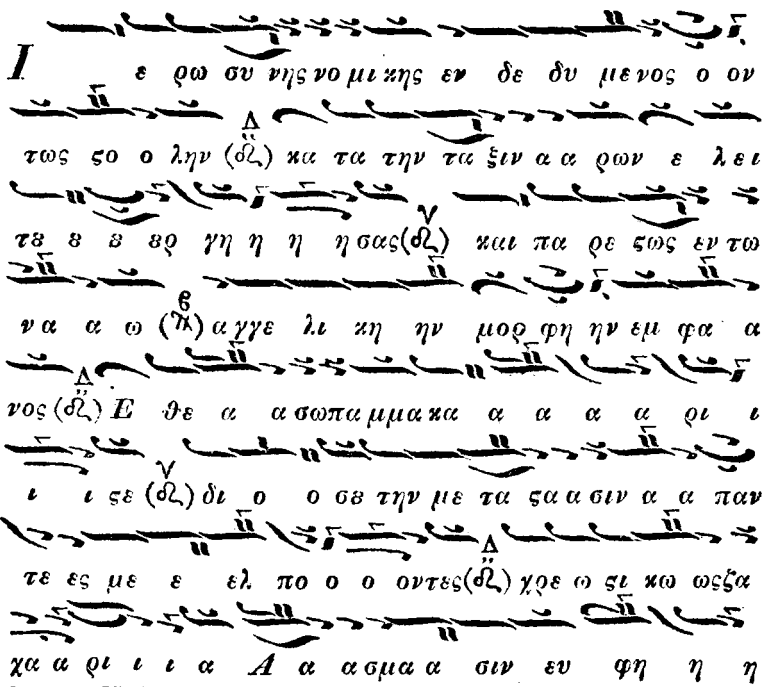 Ι ε ρω συ νης νο μι κης εν δε δυ με νος ο ον
τως ϛο ο λην (δι) κα τα την τα ξιν α α ρων ε λει
τȣ ȣ ȣ ȣρ γη η η η σας (δι) και πα ρε ϛως εν τω
να α ω (πα) α γγε λι κη ην μορ φη ην εμ φα α
νος (δι) Ε θε α α σω πα μμα κα α α α α ρι ι
ι ι ϛε (δι) δι ο ο σȣ την με τα ϛα α σιν α α παν
τε ες με ε ελ πο ο ο οντες (δι) χρε ω ϛι κω ως ζα
χα α ρι ι ι α Α α ασμα α σιν ευ φη η η